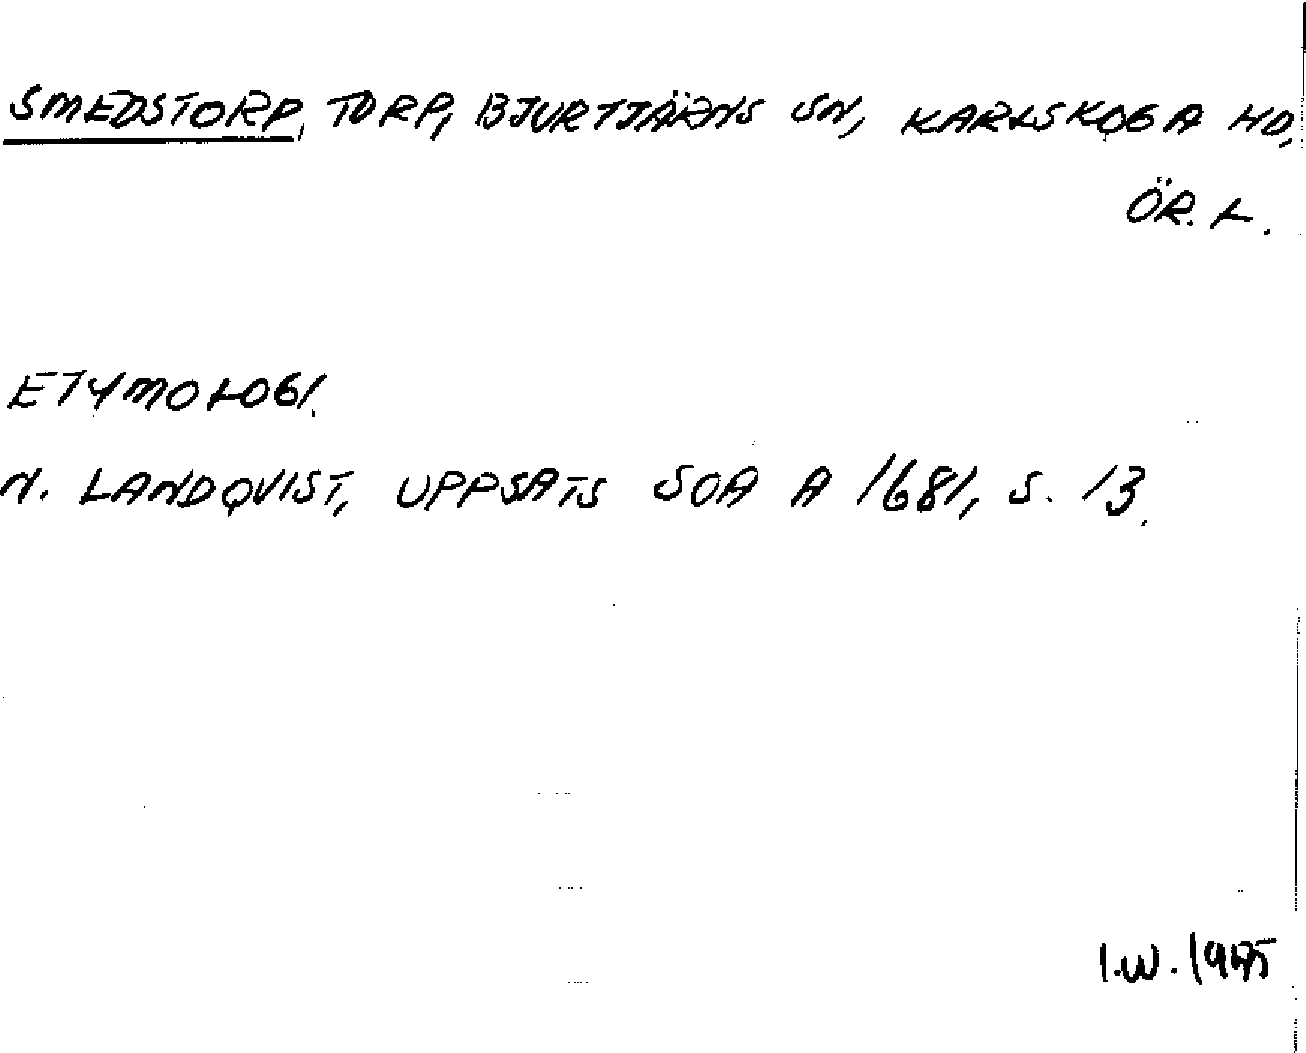 SMEDSTORP, TORP, BJURTJÄRNS SN, KARLSKOGA HD,
ÖR. L.
ETYMOLOGI.
N. LANDQVIST, UPPSATS SOA A 1681, S. 13.
I.W.